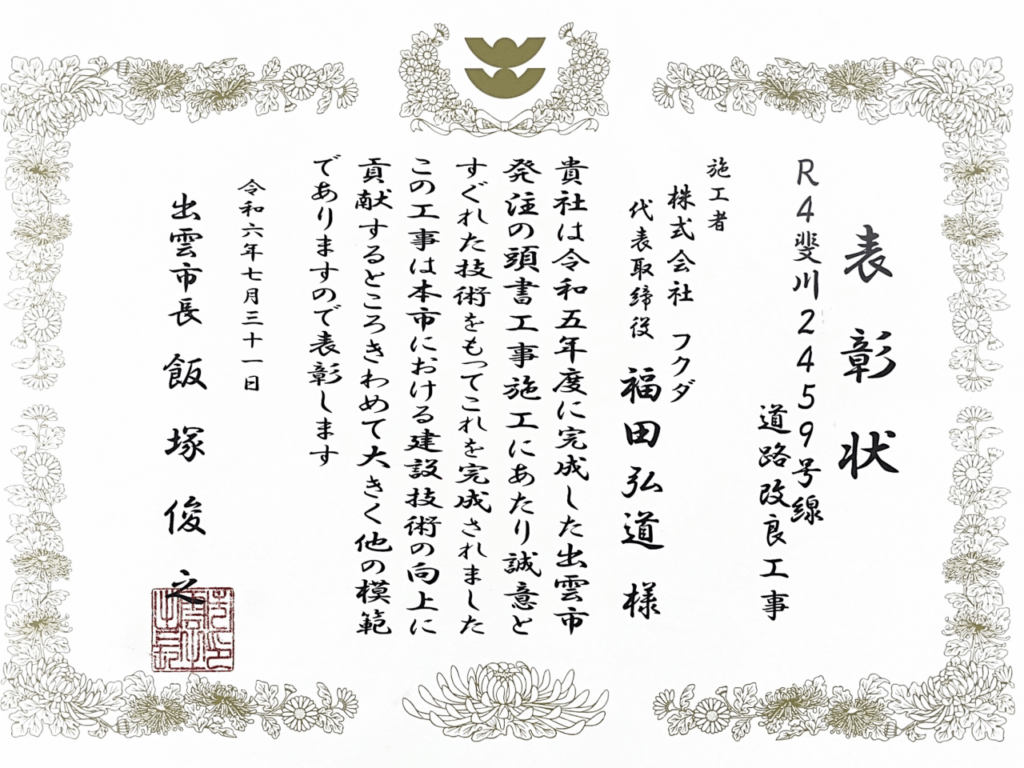 表彰状
R4斐川2459号線
道路改良工事
施工者
株式会社 フクダ
代表取締役 福田弘道 様
貴社は令和五年度に完成した出雲市
発注の頭書工事施工にあたり誠意と
すぐれた技術をもってこれを完成されました
この工事は本市における建設技術の向上に
貢献するところきわめて大きく他の模範
でありますので表彰します
令和六年七月三十一日
出雲市長 飯塚俊之